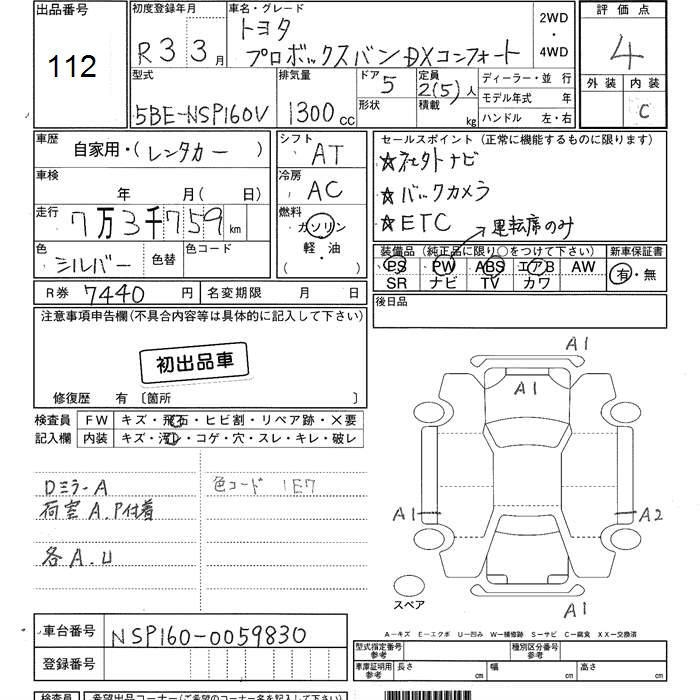 出品番号
112
初度登録年月
R3 3月
車名・グレード
トヨタ
プロボックスバン DXコンフォート
2WD
・
4WD
評価点
4
外装 内装
C
型式
5BE-NSP160V
排気量
1300 cc
ドア
5
形状
定員
2(5)人
積載
kg
ディーラー・並 行
モデル年式 年
ハンドル 左・右
車歴
自家用・(レンタカー )
シフト
AT
車検
年 月( 日)
冷房
AC
走行
7万3千759 km
燃料
ガソリン
軽・油
( )
色
シルバー
色替
色コード
セールスポイント (正常に機能するものに限ります)
☆社外ナビ
☆バックカメラ
☆ETC
運転席のみ
装備品 (純正品に限り○をつけて下さい)
PS PW ABS エアB AW
SR ナビ TV カワ
新車保証書
有・無
R券 7440 円
名変期限 月 日
後日品
注意事項申告欄(不具合内容等は具体的に記入して下さい)
初出品車
修復歴 有 〔箇所 〕
検査員
記入欄
FW キズ・飛石・ヒビ割・リペア跡・X要
内装 キズ・汚れ・コゲ・穴・スレ・キレ・破レ
Dミラ-A
荷室A.P付着
各A.U
色コード 1E7
A1
A1
A1
A2
A1
スペア
A-キズ E-エクボ U-凹み W-補修跡 S-サビ C-腐食 XX-交換済
車台番号
NSP160-0059830
登録番号
型式指定番号
参考
種別区分番号
参考
車庫証明用
参考
長さ cm
幅 cm
高さ cm
検査員
希望出品コーナー(ご希望のコーナー名を記入下さい)